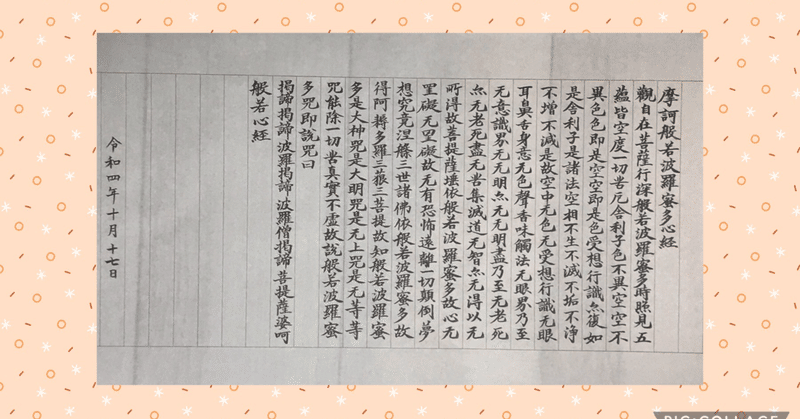 摩訶般若波羅蜜多心経
觀自在菩薩行深般若波羅蜜多時照見五
蘊皆空度一切苦厄舍利子色不異空空不
異色色即是空空即是色受想行識亦復如
是舍利子是諸法空相不生不滅不垢不浄
不增不減是故空中无色无受想行識无眼
耳鼻舌身意无色聲香味觸法无眼界乃至
无意識界无无明亦无无明盡乃至无老死
亦无老死盡无苦集滅道无智亦无得以无
所得故菩提薩埵依般若波羅蜜多故心无
罣礙无罣礙故无有恐怖遠離一切顛倒夢
想究竟涅槃三世諸佛依般若波羅蜜多故
得阿耨多羅三藐三菩提故知般若波羅蜜
多是大神咒是大明咒是无上咒是无等等
咒能除一切苦真實不虚故説般若波羅蜜
多咒即説咒曰
揭諦揭諦波羅揭諦波羅僧揭諦菩提薩婆呵
般若心経
令和四年十月十七日
PIC•COLLAGE